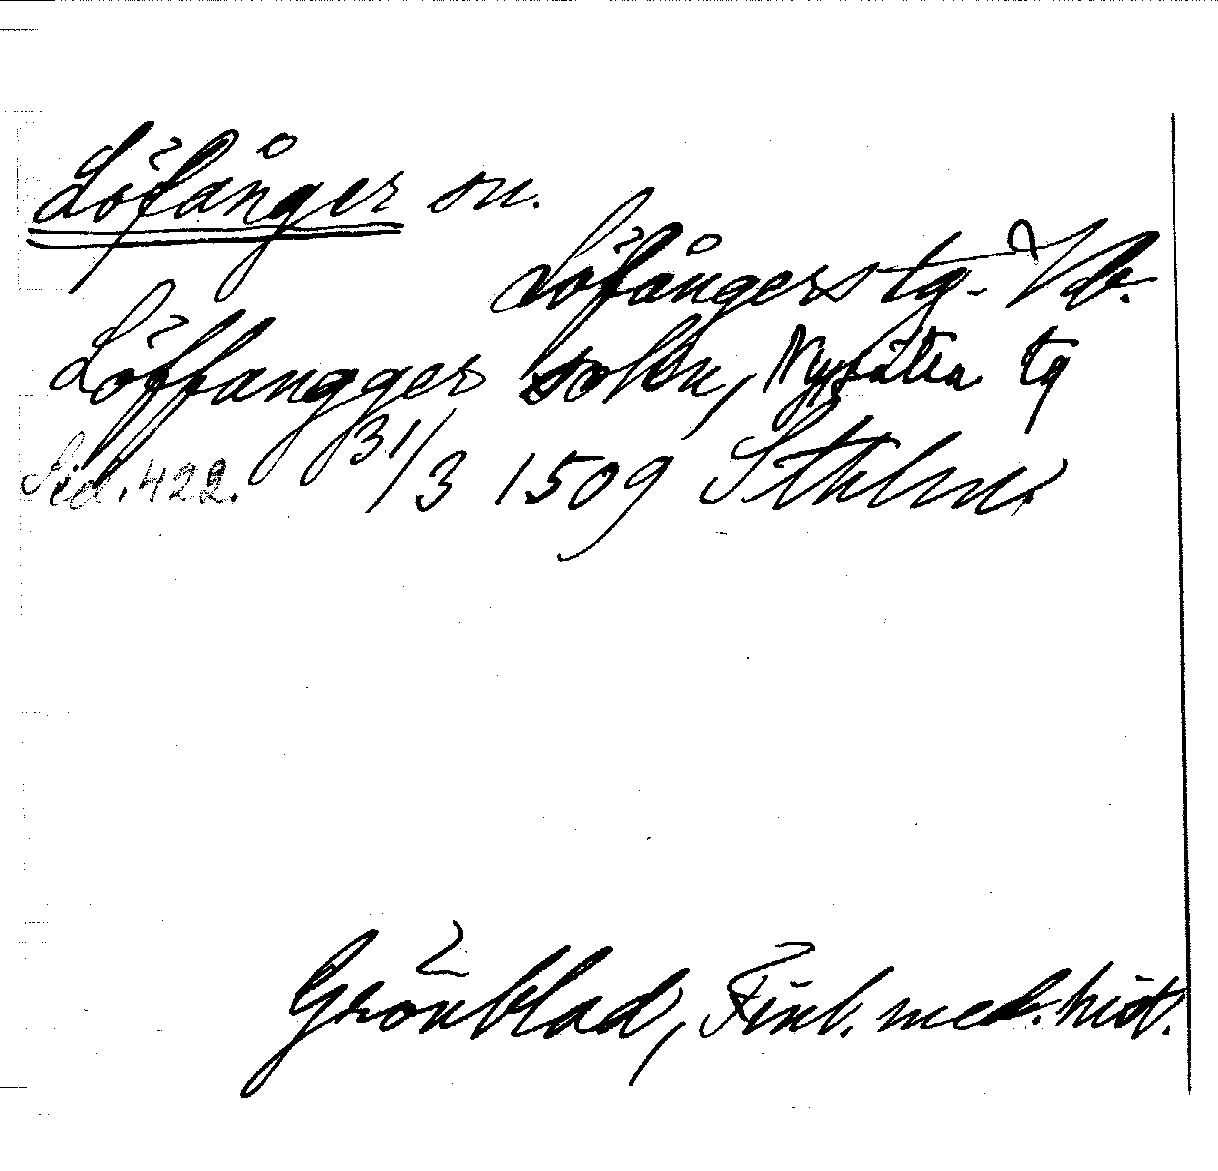 Löfånger sn.
Löfångers tg. Vb.
Löffangger sokn, Nysätra tg
Sid. 422. 31/3 1509 Sthlm.
Grönblad, Finl. med. hist.